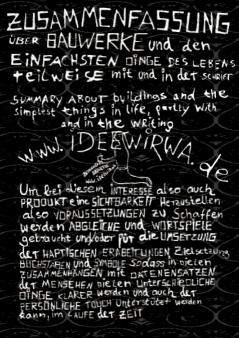 ZUSAMMENFASSUNG
ÜBER BAUWERKE und den
EINFACHSTEN DINGE DES LEBENS
teilweise mit und in der SCHRIFT
SUMMARY ABOUT buildings and the
simplest things in life, partly with
and in the writing
www.IDEEWiRWA.de
Um bei diesem INTERESSE also auch
PRODUKT eine SICHTBARKEIT Herzustellen
also VORAUSSETZUNGEN zu Schaffen
werden ABGLEICHE und WORTSPIELE
gebraucht und/oder für die UMSETZUNG
der HAPTISCHEN ERARBEITUNGEN Zielsetzung
BUCHSTABEN und SYMBOLE Sodass in vielen
ZUSAMMENHÄNGEN mit DATENENSATZEN
der MENSCHEN vielen UNTERSCHIEDLICHE
DINGE KLARER werden und auch der
PERSÖNLICHE TOUCH Unterstützet werden
kann, im LAUFE der ZEIT